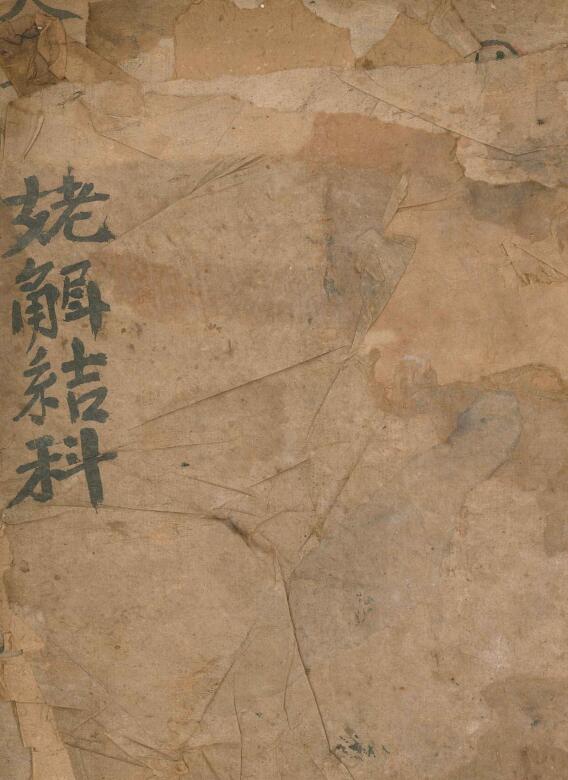 姥解結科